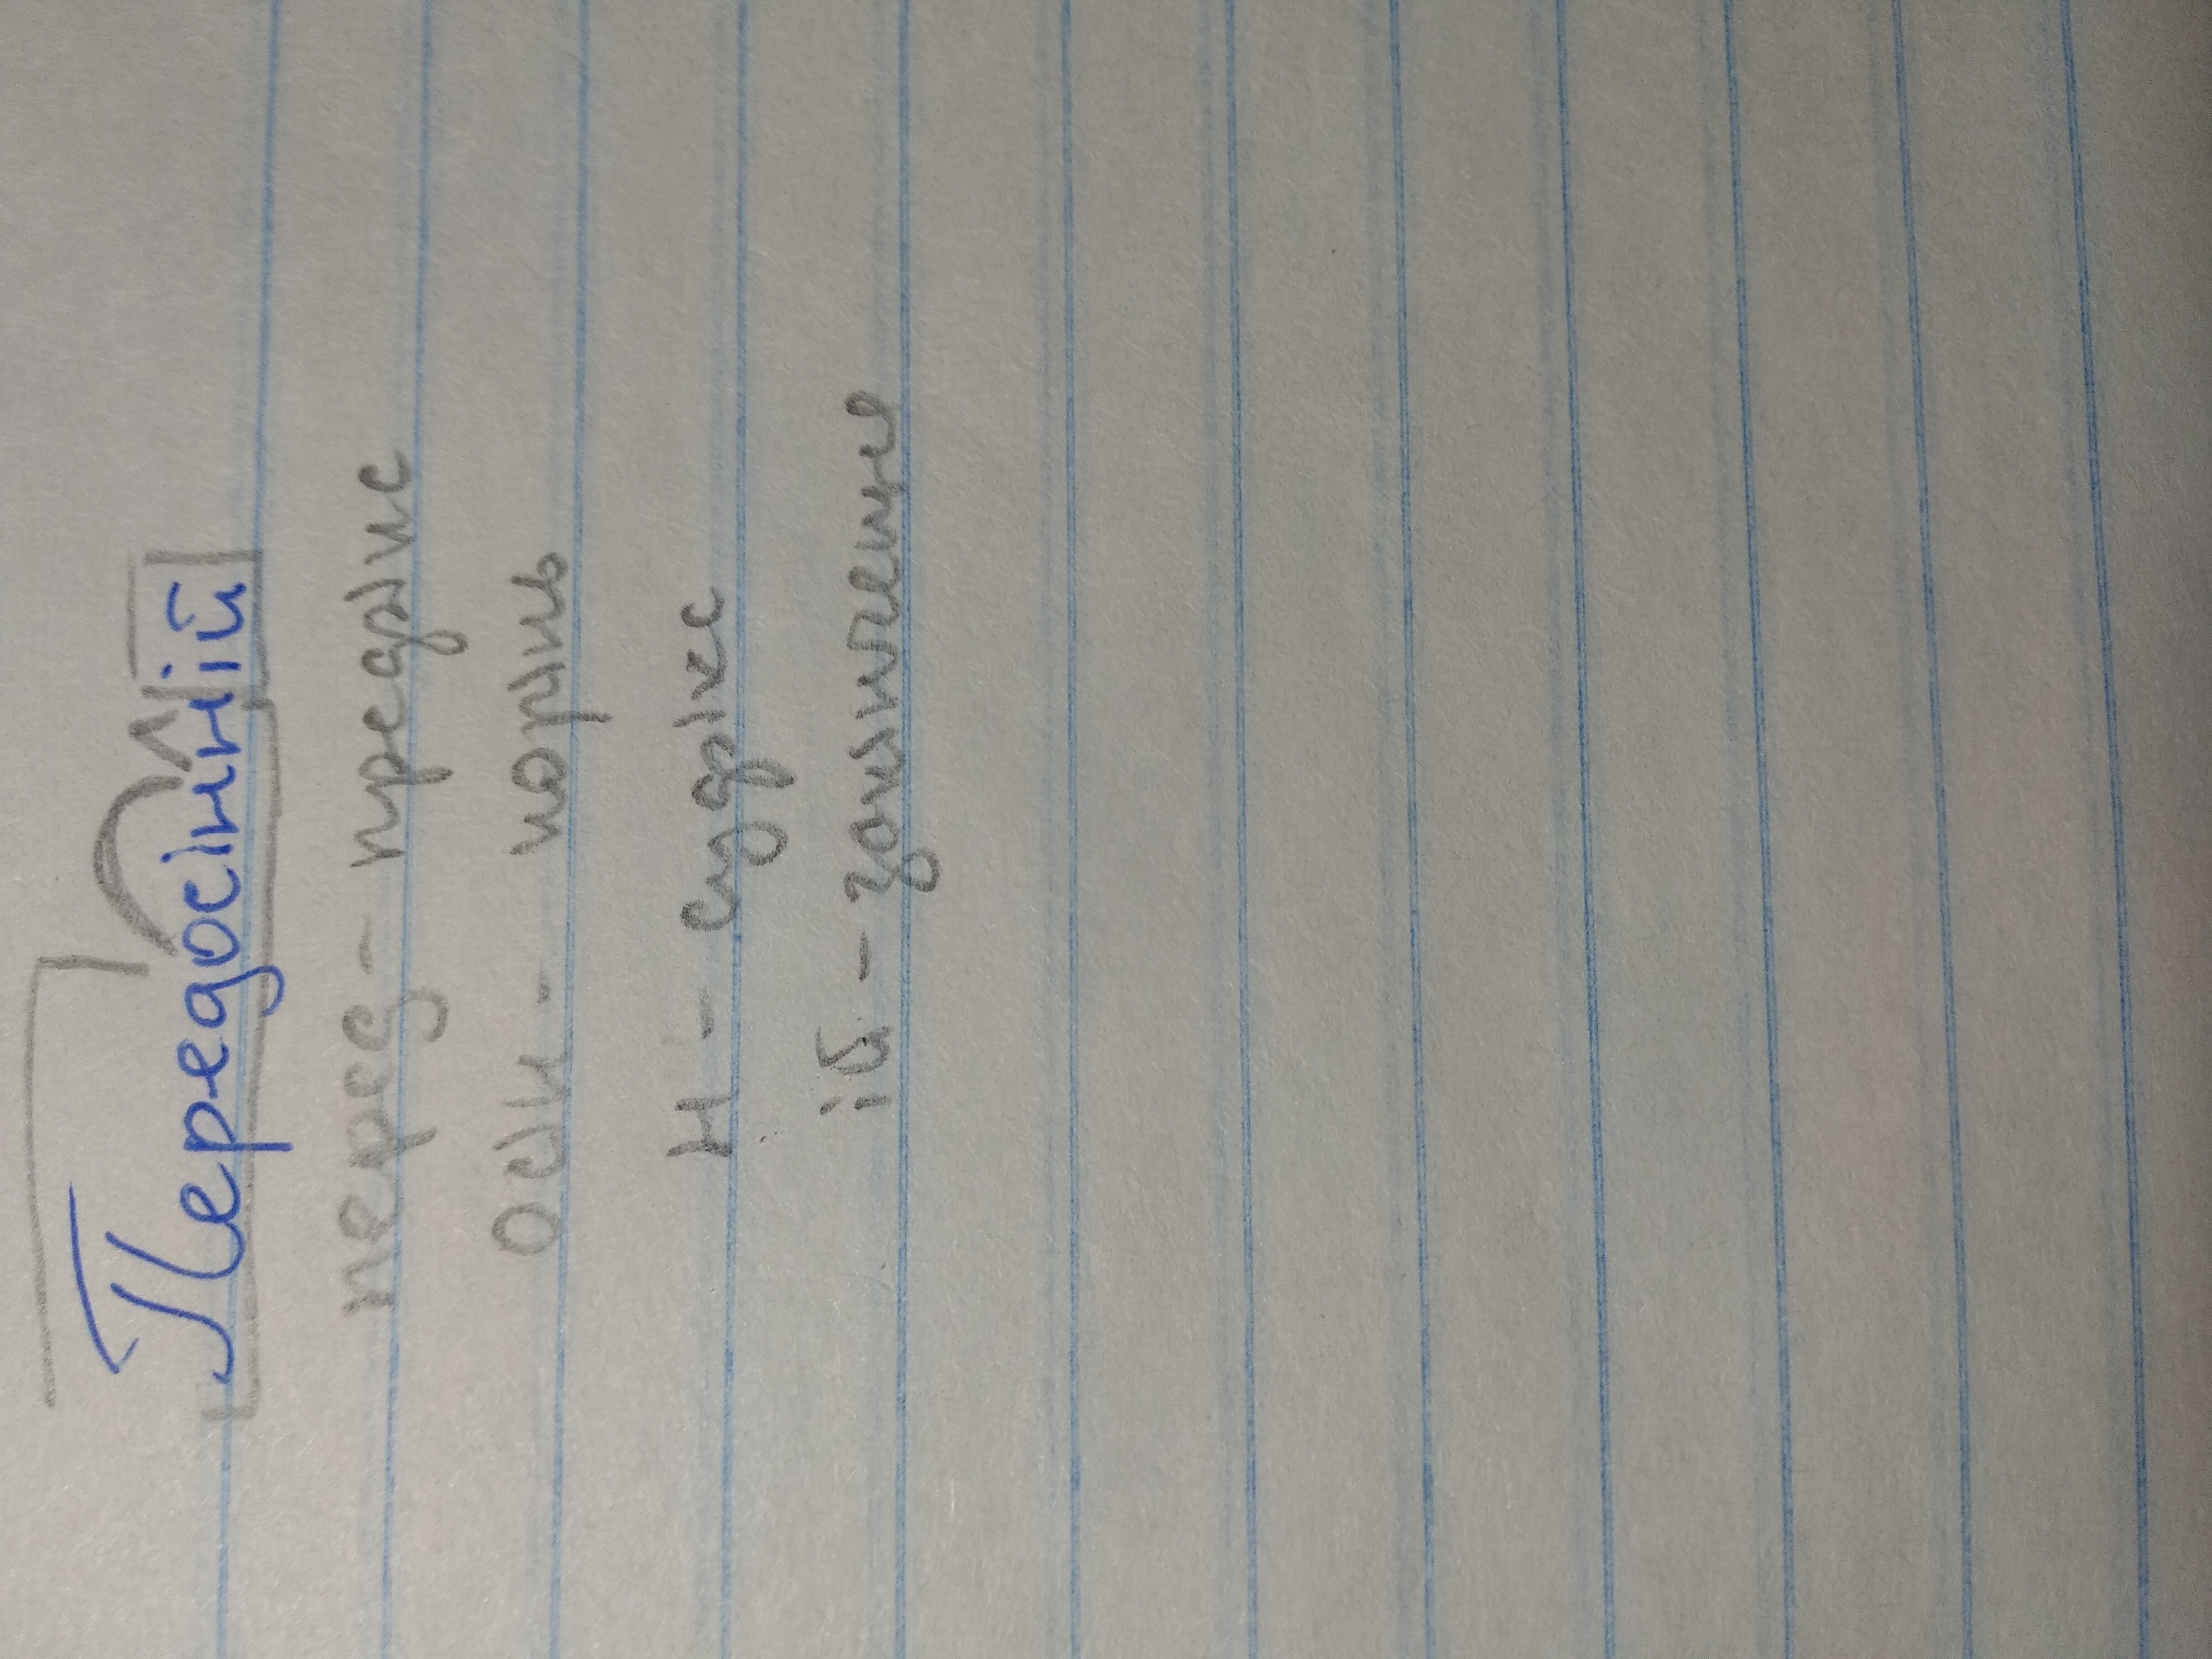 Передосінній
перед - префікс
осін - корінь
н - суфікс
ій - закінчення